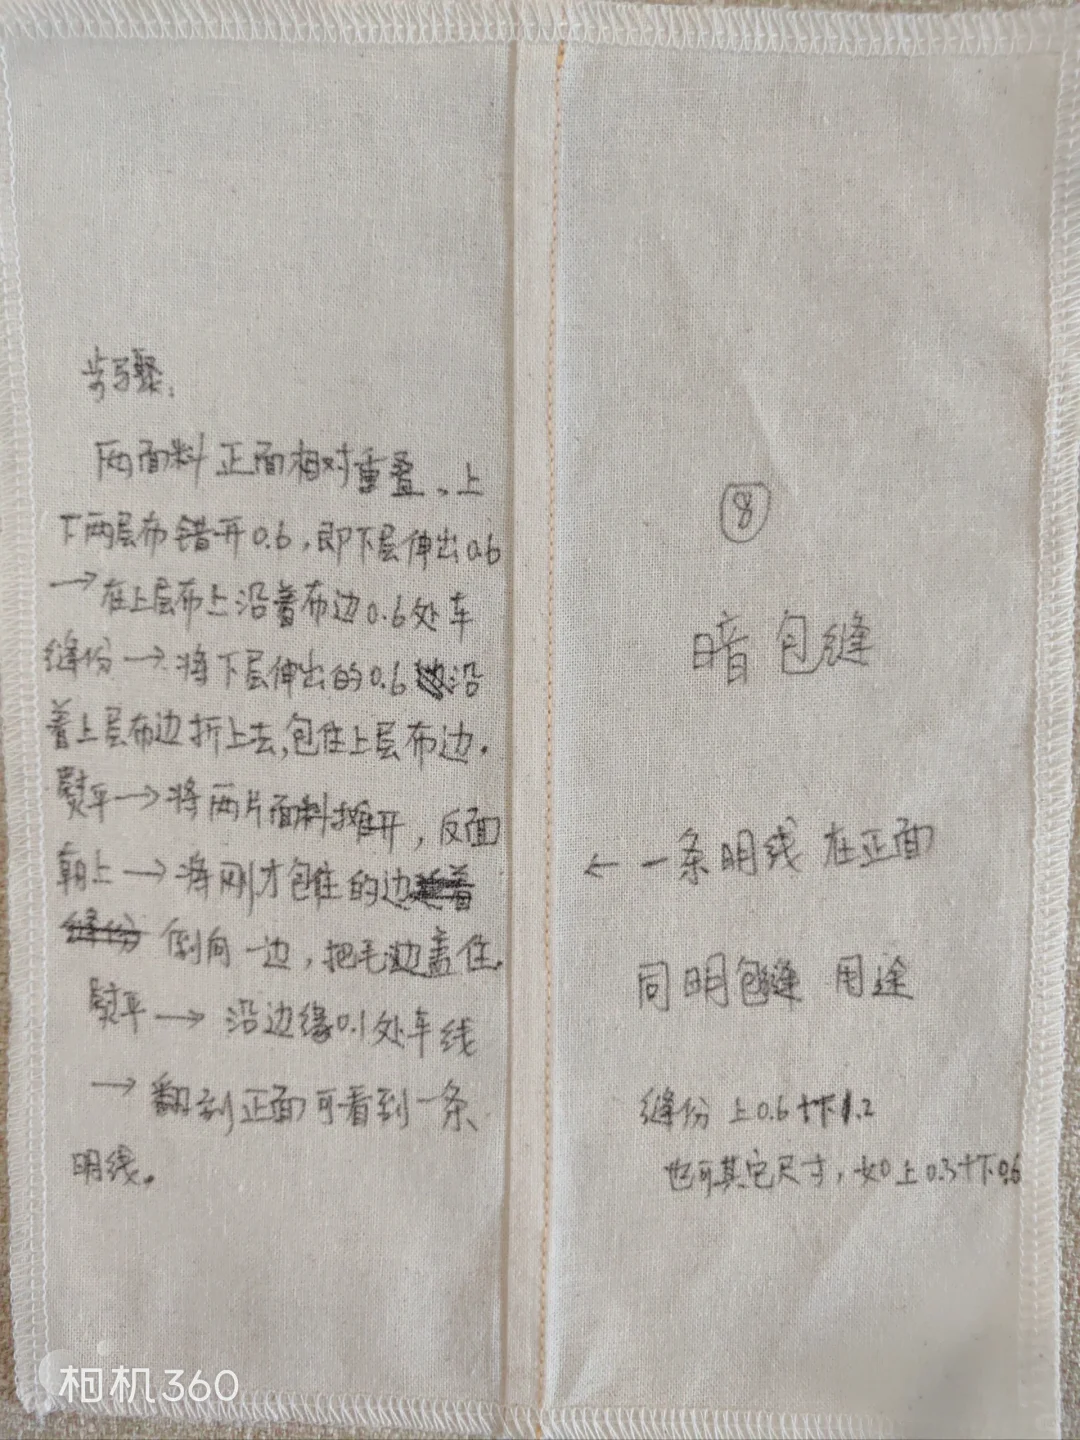 步骤:
两面料正面相对重叠、上
下两层布错开0.6,即下层伸出0.6
→在上层布上沿着布边0.6处车
缝份→将下层伸出的0.6沿
着上层布边折上去,包住上层布边.
熨平→将两片面料摊开,反面
朝上→将刚才包住的边
倒向一边,把毛边盖住.
熨平→沿边缘0.1处车线
→翻到正面可看到一条
明线.
⑧
暗包缝
←一条明线 在正面
同明包缝 用途
缝份 上0.6+下1.2
也可其它尺寸,如上0.3+下0.6
相机360